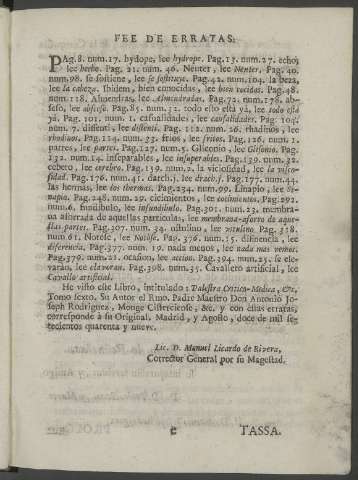 FEE DE ERRATAS.
PAg. 8. num. 17. hydope, lee hydrope. Pag. 13. num. 27. echo;
lee hecho. Pag. 21. num. 46. Nenter, lee Nenter. Pag. 40.
num. 98. se sostiene, lee se substraye. Pag. 42. num. 104. la beza,
lee la cabeza. Ibidem, bien conocidas, lee bien cocidas. Pag. 48.
num. 118. Almendras, lee Almendradas. Pag. 72. num. 178. ab-
seso, lee absceso. Pag. 85. num. 32. todo esto está yá, lee todo está
yá. Pag. 101. num. 1. casualidades, lee causalidades. Pag. 104.
num. 7. dissenti, lee dissenti. Pag. 112. num. 26. rhadinos, lee
rhodinos. Pag. 114. num. 33. frios, lee frios. Pag. 126. num. 1.
partes, lee partes. Pag. 127. num. 5. Glicenio, lee Glisonio. Pag.
132. num. 14. inseparables, lee insuperables. Pag. 139. num. 32.
cebero, lee cerebro. Pag. 139. num. 2. la viciosidad, lee la visco-
sidad. Pag. 176. num. 41. darch.j. lee drach.j. Pag. 177. num. 44.
las hermas, lee los thermas. Pag. 234. num. 99. Linapio, lee si-
napio. Pag. 248. num. 29. cicimientos, lee cocimientos. Pag. 292.
num. 6. fundibulo, lee infundibulo. Pag. 301. num. 23. membra-
na aforrada de aquellas particulas, lee membrana-aforro de aque-
llas partes. Pag. 307. num. 34. nitulino, lee vitulino. Pag. 318.
num 61. Notole, lee Notose. Pag. 376. num. 15. diferencia, lee
diferencia. Pag. 377. num. 19. nada menos, lee nada mas menos.
Pag. 379. num. 21. ocasion, lee accion. Pag. 394. num. 25. se ele-
varán, lee elavoran. Pag. 398. num. 35. Cavallero artificial, lee
Cavallo artificial.
He visto este Libro, intitulado: Palestra Critico-Medica, &c.
Tomo sexto. Su Autor el Rmo. Padre Maestro Don Antonio Jo-
seph Rodriguez, Monge Cisterciense, &c. y con estas erratas,
corresponde à su Original. Madrid, y Agosto, doce de mil se-
tecientos quarenta y nueve.
Lic. D. Manuel Licardo de Rivera,
Corrector General por su Magestad.
c TASSA.